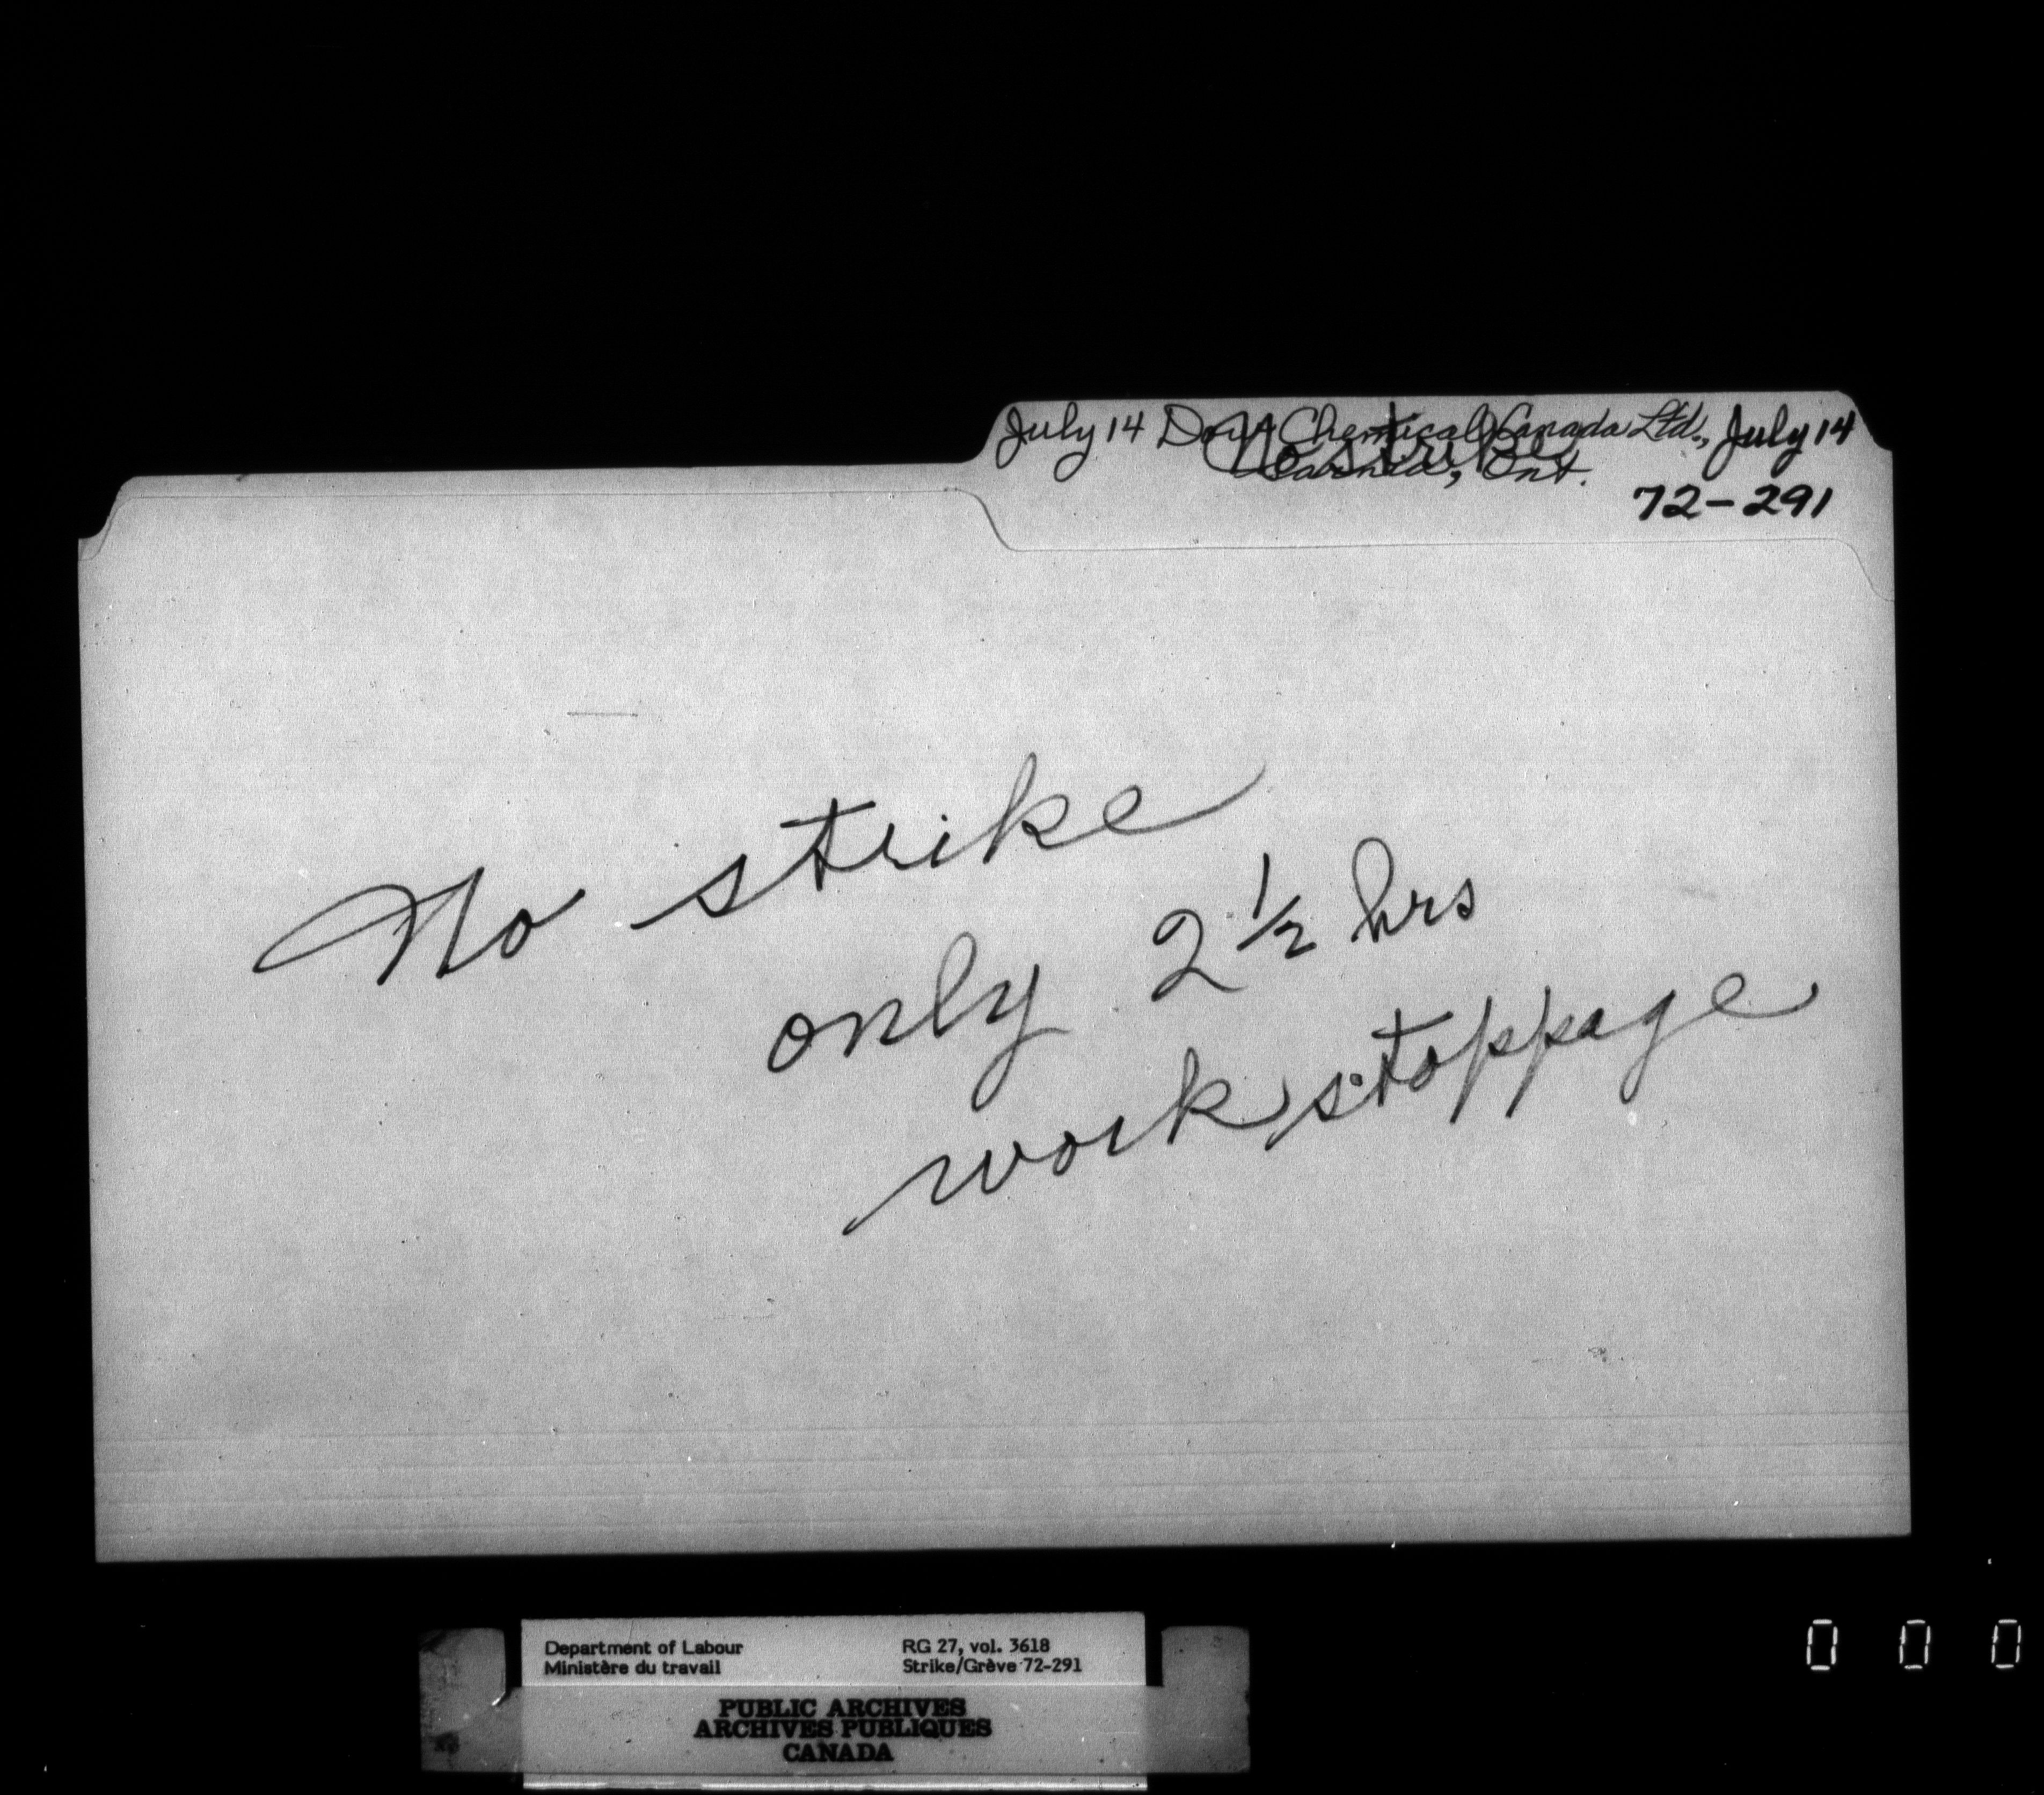 July 14 Dow Chemical Canada Ltd., July 14
No strike
Sarnia, Ont.
72-291
No strike
only 2 1/2 hrs
work stoppage
Department of Labour
Ministère du travail
RG 27, vol. 3618
Strike/Grève 72-291
PUBLIC ARCHIVES
ARCHIVES PUBLIQUES
CANADA
0 0 0